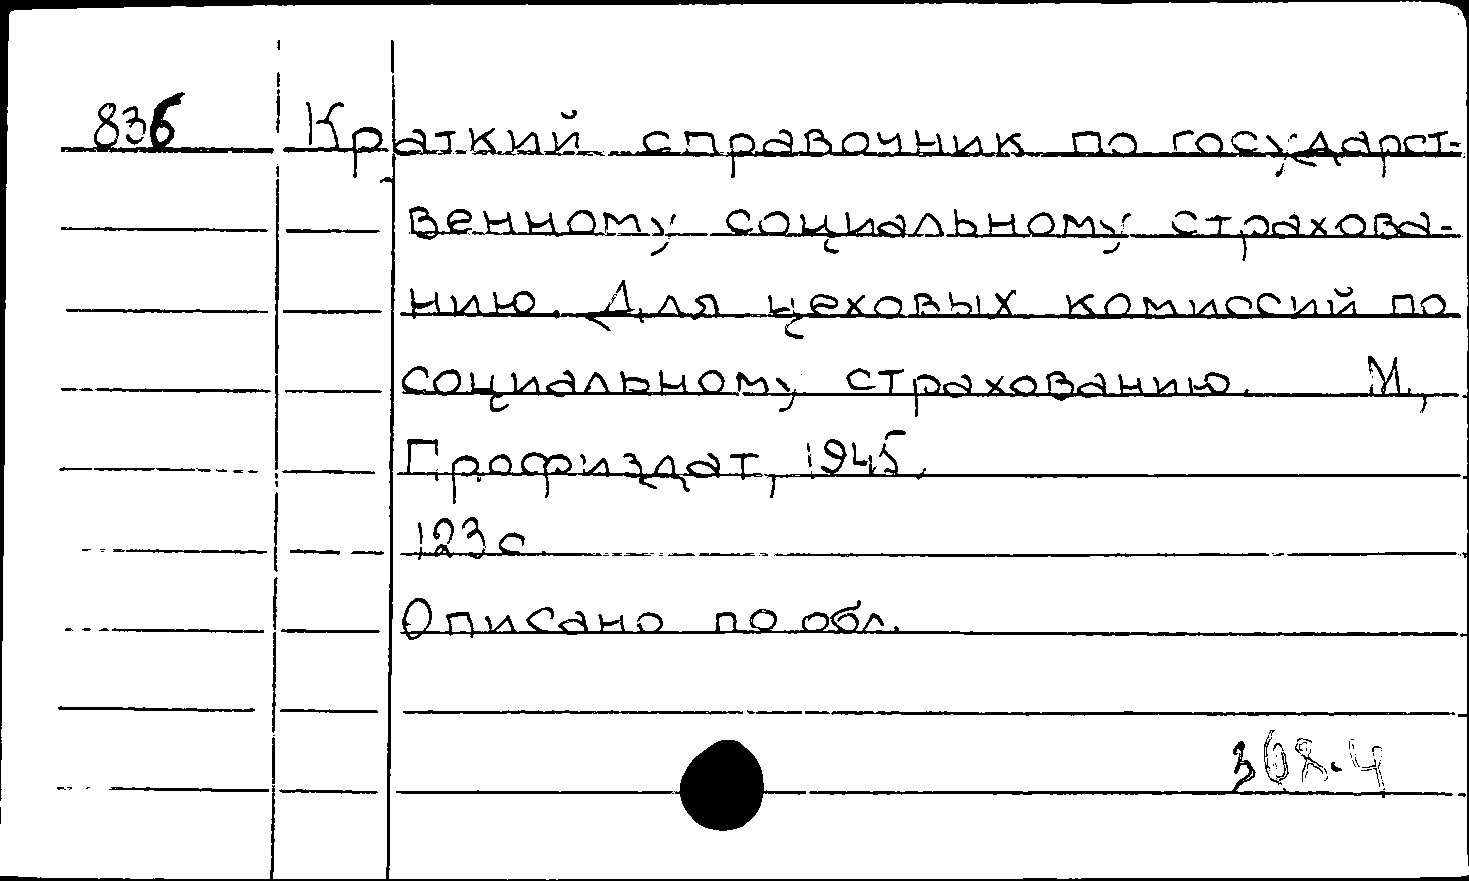 836 Краткий справочник по государст-
венному социальному страхова-
нию. Для цеховых комиссий по
социальному страхованию. М.,
Профиздат, 1945.
123 с.
Описано по обл.
368.4